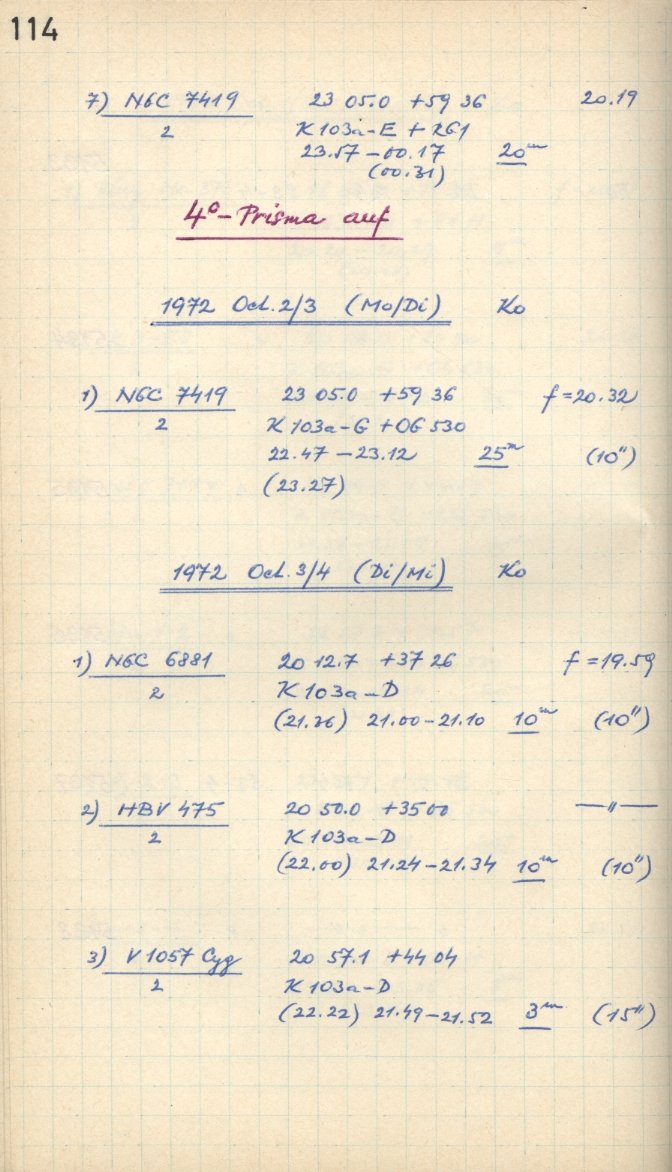 114
7) NGC 7419 23 05.0 +59 36 20.19
2 K 103a-E + RG1
23.57 - 00.17 20m
(00.31)
4°-Prisma auf
1972 Oct. 2/3 (Mo/Di) Ko
1) NGC 7419 23 05.0 +59 36 f = 20.32
2 K 103a-G + OG 530
22.47 - 23.12 25m (10")
(23.27)
1972 Oct. 3/4 (Di/Mi) Ko
1) NGC 6881 20 12.7 +37 26 f = 19.59
2 K 103a-D
(21.36) 21.00-21.10 10m (10")
2) HBV 475 20 50.0 +35 00 — " —
2 K 103a-D
(22.00) 21.24-21.34 10m (10")
3) V 1057 Cyg 20 57.1 +44 04
2 K 103a-D
(22.22) 21.49-21.52 3m (15")